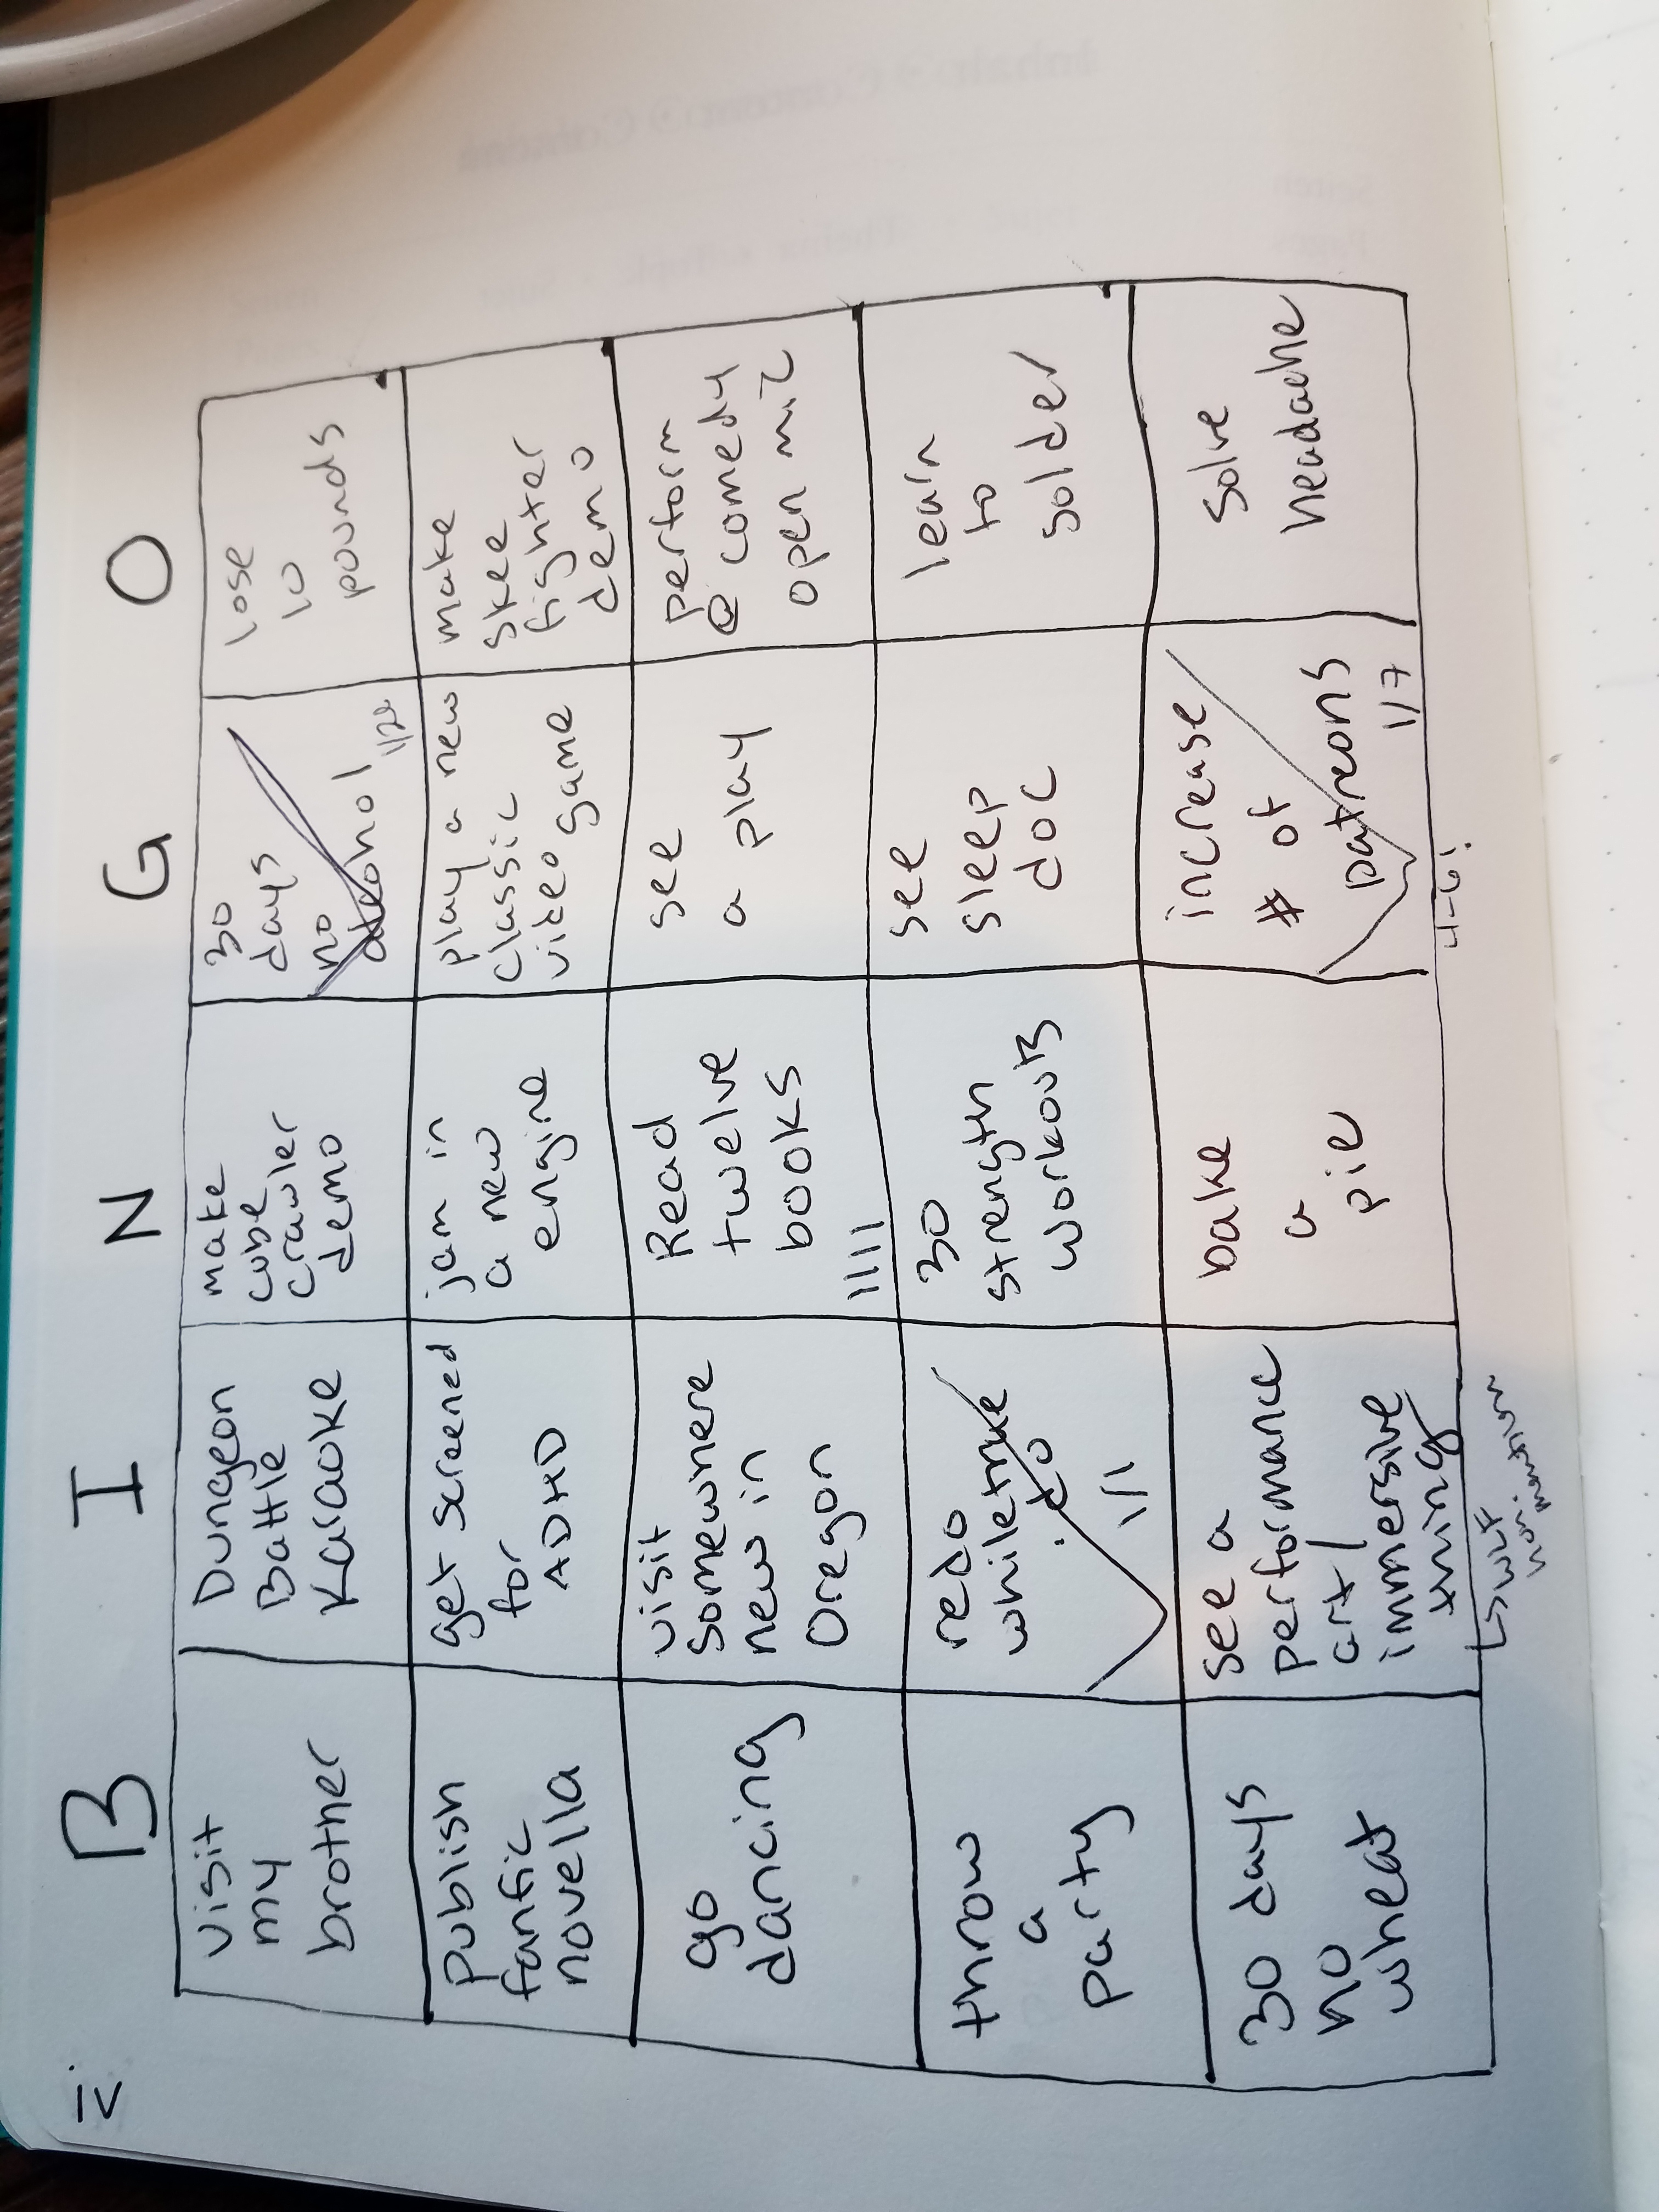 B I N G O
visit
my
brother
Dungeon
Battle
Karaoke
make
cube
crawler
demo
30
days
no
alcohol
lose
10
pounds
publish
fanfic
novella
get screened
for
ADHD
jam in
a new
engine
play a new
classic
video game
make
skee
fighter
demo
go
dancing
visit
somewhere
new in
Oregon
Read
twelve
books
||||
see
a play
perform
@ comedy
open mic
throw
a
party
redo
whiletrue
.to
1/1
30
strength
workouts
see
sleep
doc
learn
to
solder
30 days
no
wheat
see a
performance
art/
immersive
thing
bake
a
pie
increase
# of
patreons
1/7
solve
headache